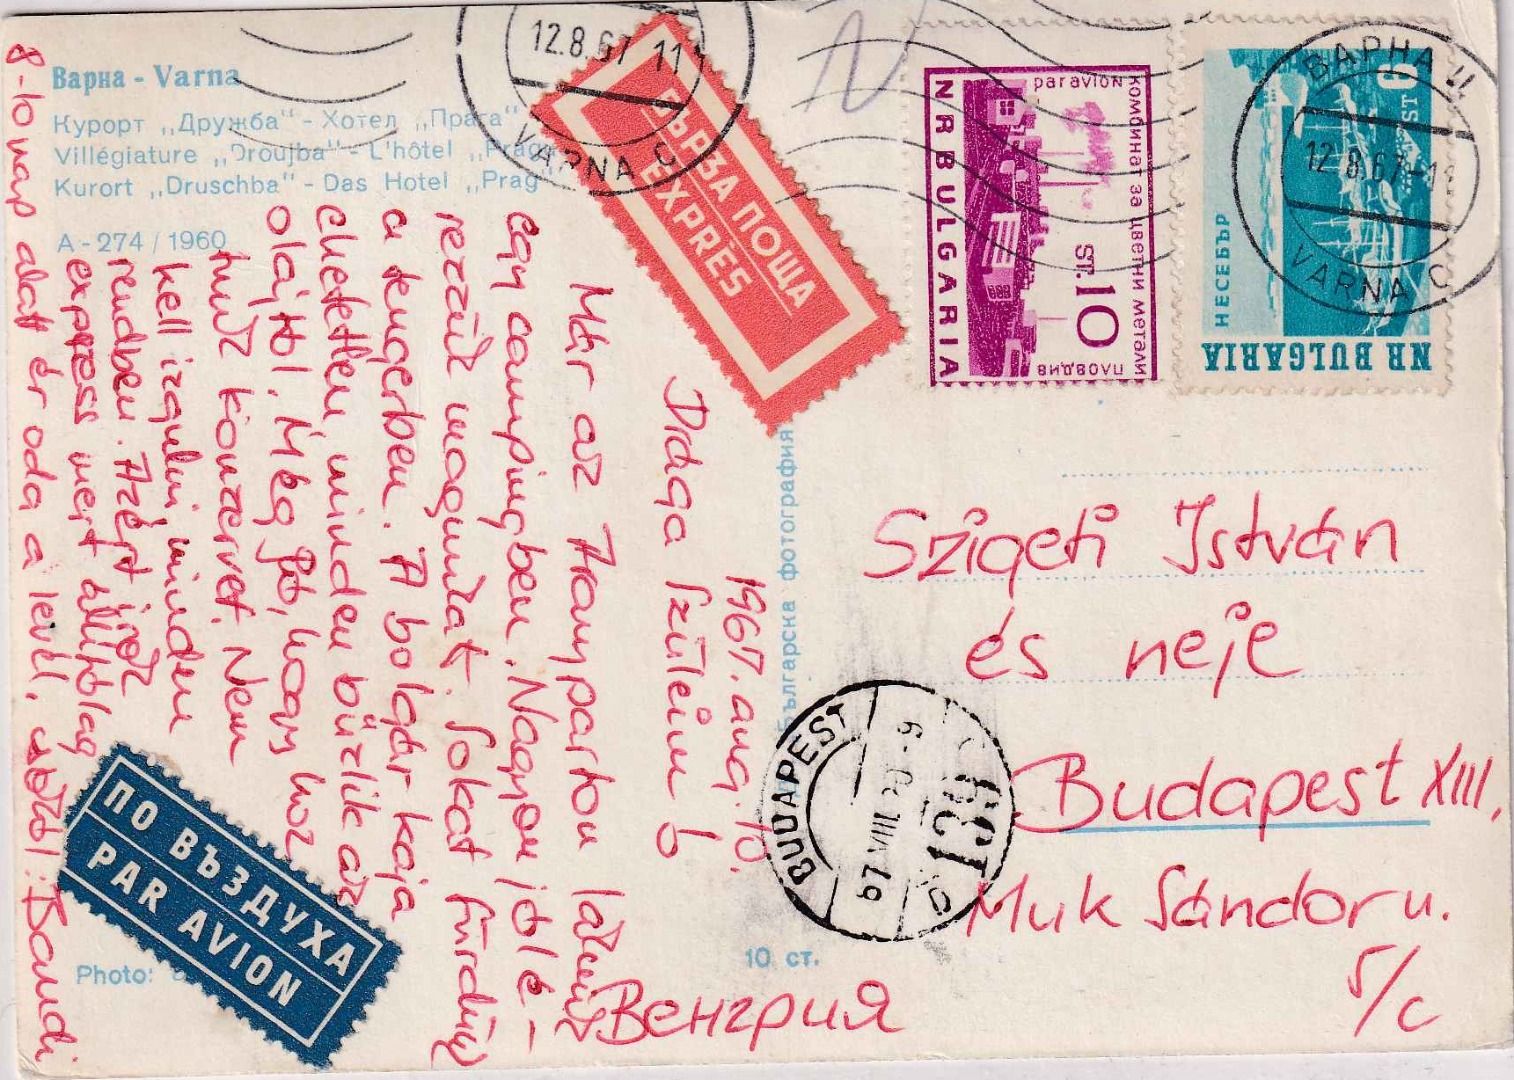 Варна - Varna
Курорт „Дружба" - Хотел „Прага"
Villégiature „Droujba" - L'hôtel „Prag
Kurort „Druschba" - Das Hotel „Prag"
A - 274 / 1960
12.8.67 11
VARNA C
БЪРЗА ПОЩА
EXPRÈS
NR BULGARIA
par avion
комбинат за цветни метали
пловдив
ST. 10
НЕСЕБЪР
NR BULGARIA
ST
ВАРНА Ц
12.8.67-11
VARNA C
1967. aug. 10.
Drága Szüleim
Már az Aranyparton lakunk
egy campingben. Nagyon jól é-
rezzük magunkat. Sokat fürdünk
a tengerben. A bolgár kaja
ehetetlen, minden bűzlik az
olajtól. Még jó, hogy hoz
tunk konzervet. Nem
kell izgulni minden
rendben. Azért írok
express mert állítólag
8-10 nap alatt ér oda a levél.
Bandi
българска фотография
Szigeti István
és neje
Budapest XIII.
Muk Sándor u.
5/c
Венгрия
BUDAPEST
67 VIII
139
10 ст.
Photo:
ПО ВЪЗДУХА
PAR AVION